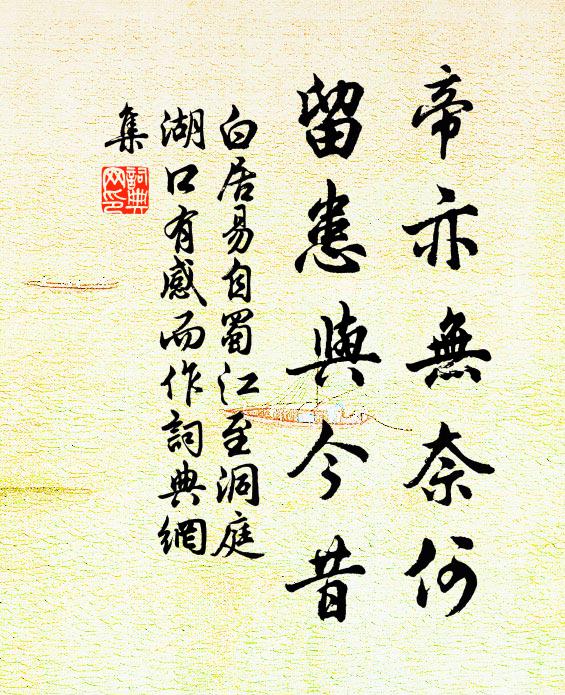 帝亦無奈何
留患與今昔
白居易自蜀江至洞庭
湖口有感而作詞典網
集
詞典
网印